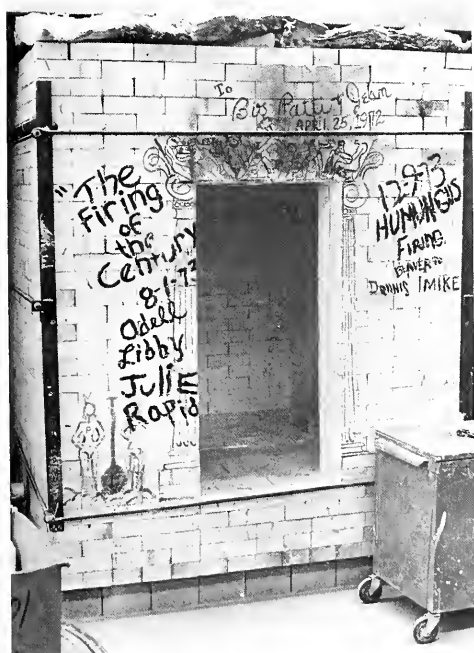 To
Big Patty & Jean
APRIL 25, 1972
"The
Firing
of
the
Century
8-1-73
Odell
Libby
Julie
Rapid
12-9-73
HUMUNGUS
FIRING
BEAVER TO
DENNIS / MIKE